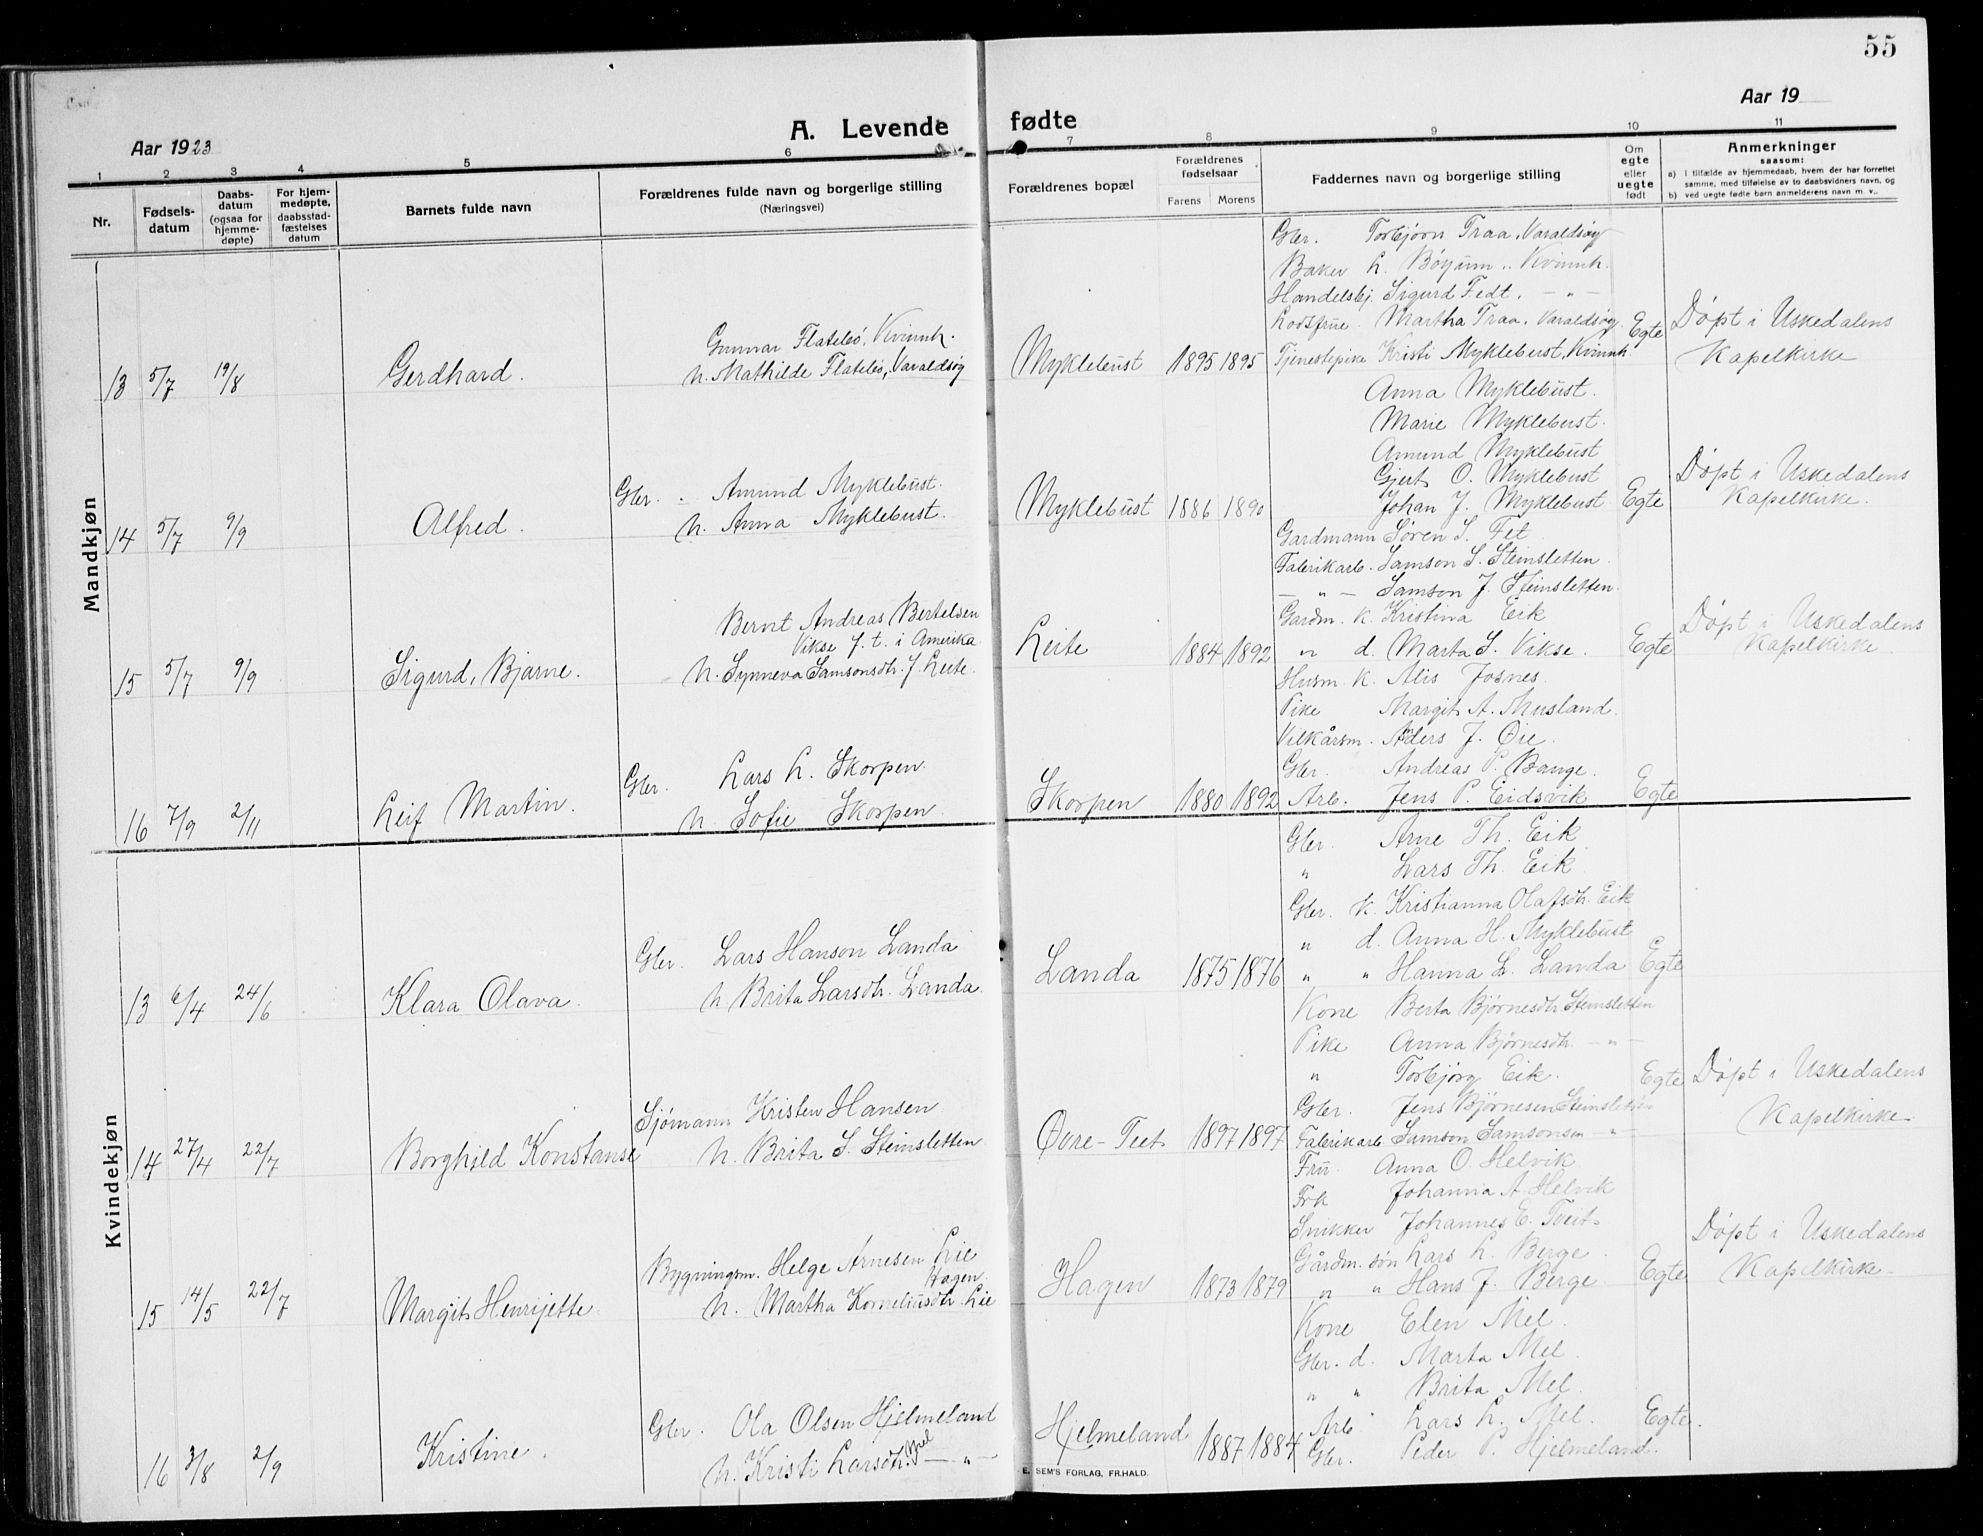 55
Aar 1923
A. Levende fødte
Aar 19
1 2 3 4 5 6 7 8 9 10 11
Nr.
Fødsels-
datum
Daabs-
datum
(ogsaa for
hjemme-
døpte)
For hjem-
medøpte,
daabsstad-
fæstelses
datum
Barnets fulde navn
Forældrenes fulde navn og borgerlige stilling
(Næringsvei)
Forældrenes bopæl
Forældrenes
fødselsaar
Farens Morens
Faddernes navn og borgerlige stilling
Om
egte
eller
uegte
født
Anmerkninger
saasom:
a) I tilfælde av hjemmedaab, hvem der har forrettet
samme, med tilføielse av to daabsvidners navn, og
b) ved uegte fødte barn anmelderens navn m. v..
Mandkjøn
13 5/7 19/8 Gerdhard.
Gunnar Flatebø, Kvinnh.
h. Mathilde Flatebø, Varaldsøy
Myklebust 1895 1895
Gbr. Torbjørn Traa, Varaldsøy
Baker L. Bøyum, Kvinnh.
Handelsbj. Sigurd Fedt. — " —
Losfrue. Martha Traa, Varaldsøy
Tjenestepike Kristi Myklebust, Kvinnh.
Egte
Døpt i Uskedalens
Kapelkirke
14 5/7 9/9 Alfred.
Gbr. Amund Myklebust.
h. Anna Myklebust.
Myklebust 1886 1890
Anna Myklebust.
Marie Myklebust.
Amund Myklebust
Gjert O. Myklebust
Johan J. Myklebust
Egte
Døpt i Uskedalens
Kapelkirke.
15 5/7 9/9 Sigurd, Bjarne.
Bernt Andreas Bertelsen
Vikse f. t. i Amerika
h. Synneva Samsonsdtr. f. Leite.
Leite 1884 1892
Gardmann Søren S. Fet
Fabrikarb. Samson S. Steinsletten.
— " — Samson J. Steinsletten.
Gardm. k. Kristina Eik
" d. Marta S. Vikse.
Egte
Døpt i Uskedalens
Kapelkirke.
16 7/9 2/11 Leif Martin.
Gbr. Lars L. Skorpen.
h. Sofie Skorpen.
Skorpen 1880 1892
Husm. k. Alis Josnes.
Pike Margit A. Musland.
Vilkårsm. Anders J. Øie.
Gbr. Andreas P. Bauge.
Arb. Jens P. Eidsvik
Egte
Kvindekjøn
13 6/4 24/6 Klara Olava.
Gbr. Lars Hanson Landa
h. Brita Larsdtr. Landa.
Landa 1875 1876
Gbr. Arne Th. Eik
" Lars Th. Eik
Gbr. k. Kristianna Olafsdtr. Eik
" d. Anna H. Myklebust
" " Hanna L. Landa
Egte
14 27/4 22/7 Borghild Konstanse
Sjømann Kristen Hansen
h. Brita S. Steinsletten
Øvre-Teet 1897 1897
Kone Berta Bjørnesdtr. Steinsletten
Pike Anna Bjørnesdtr. — " —
" Torbjørg Eik.
Gbr. Jens Bjørnesen Steinsletten
Fabrikarb Samson Samsonsen — " —
Egte
Døpt i Uskedalens
Kapelkirke.
15 14/5 22/7 Margit Henrijette.
Bygningsm. Helge Arnesen Lie
Hagen
h. Martha Korneliusdtr. Lie
Hagen 1873 1879
Fru Anna O. Helvik
Frk Johanna A. Helvik
Snikker Johannes E. Tveit
Gårdm. søn Lars L. Berge.
" " Hans J. Berge
Egte
Døpt i Uskedalens
Kapelkirke.
16 3/8 2/9 Kristine.
Gbr. Ola Olsen Hjelmeland
h. Kristi Larsdtr. Mel — " —
Hjelmeland 1887 1884
Kone Elen Mel.
Gbr. d. Marta Mel.
" " Brita Mel.
Arb. Lars L. Mel.
Gbr. Peder P. Hjelmeland.
Egte.
E. SEM'S FORLAG, FR.HALD.